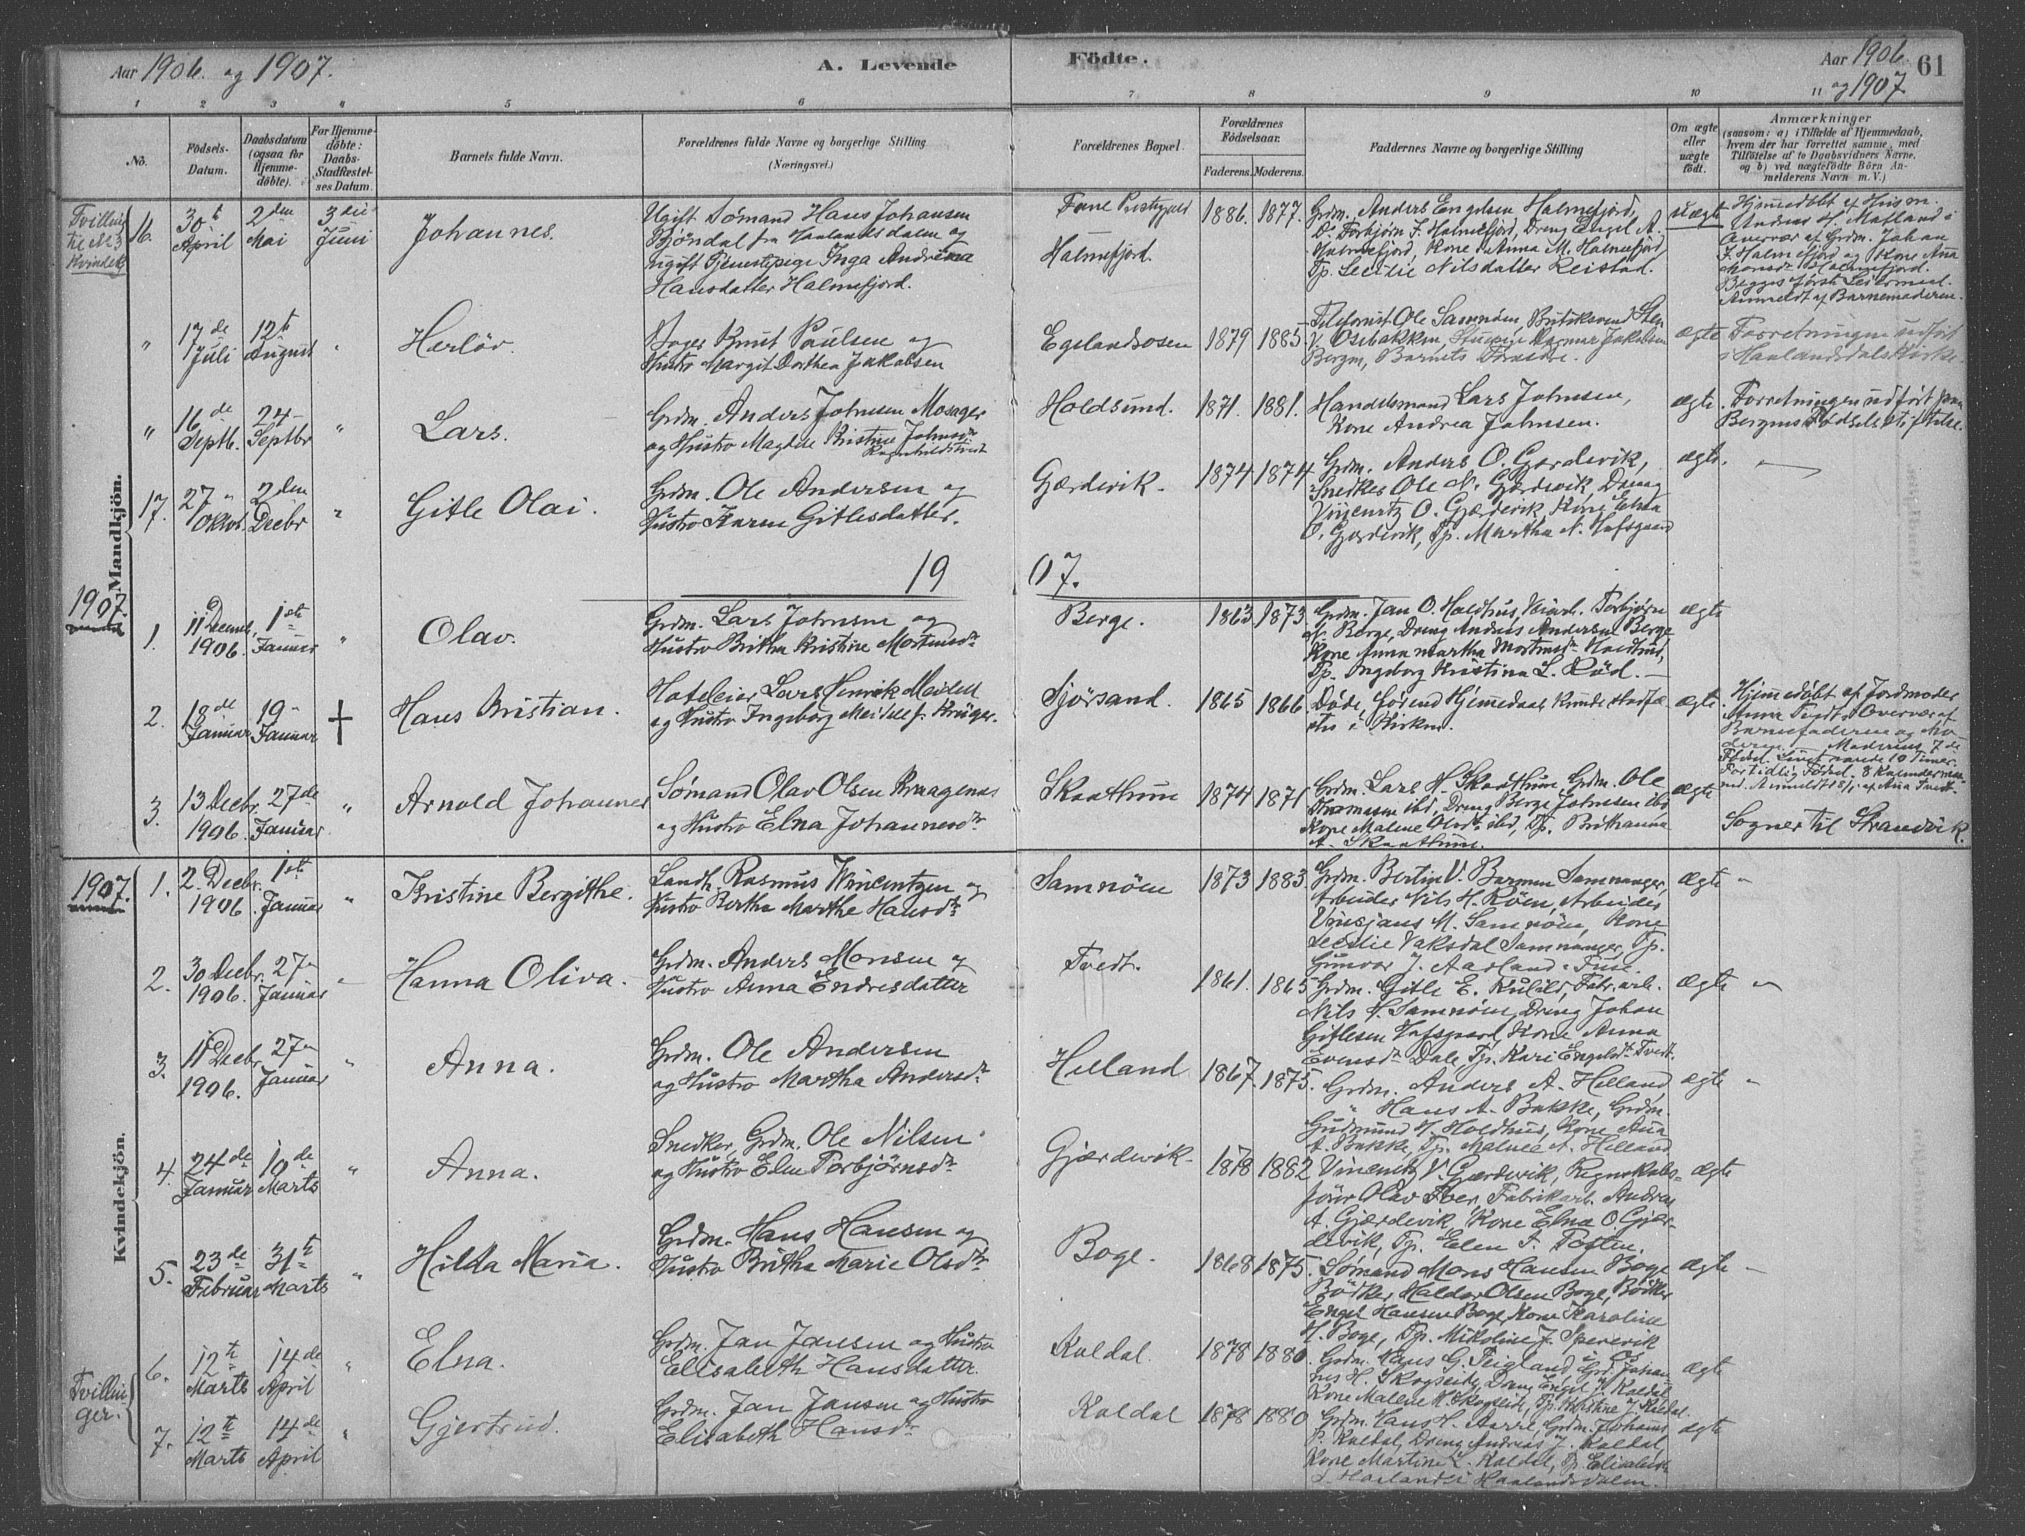 Aar 1906. og 1907.
A. Levende
Födte.
Aar 1906.
og 1907
61
1 2 3 4 5 6 7 8 9 10 11
No.
Födsels-
Datum.
Daabsdatum
(ogsaa for
Hjemme-
döbte).
For Hjemme-
döbte:
Daabs-
Stadfæstel-
ses Datum.
Barnets fulde Navn.
Forældrenes fulde Navne og borgerlige Stilling
(Næringsvei.)
Forældrenes Bopæl.
Forældrenes
Födselsaar.
Faderens. Moderens.
Faddernes Navne og borgerlige Stilling
Om ægte
eller
uægte
födt.
Anmærkninger
(saasom: a) i Tilfælde af Hjemmedaab,
hvem der har forrettet samme, med
Tilföielse af to Daabsvidners Navne,
og b) ved uægtefödte Börn An-
melderens Navn m. V.)
Mandkjön.
Tvilling
til No 3
Kvindekj.
16.
30t
April
2den
Mai
3die
Juni
Johannes.
Ugift Sømand Hans Johansen
Bjöndal fra Haalandsdalen og
ugift Tjenestepige Inga Andrina
Hansdatter Halmefjord.
Fane Prestegjeld
Halmefjord.
1886. 1877.
Grdm. Anders Engelsen Halmefjord,
Do Torbjørn J. Halmefjord, Dreng Engel A.
Halmefjord, Kone Anna M. Halmefjord,
Tp. Cecilie Nilsdatter Reistad.
uægte
Hjemedöbt af Husm.
Anders H. Mafland i
Overvær af Grdm. Johan
J. Halmefjord og Kone Ana
Monsdr Halmefjord.
Begges første Leiermaal.
Anmeldt af Barnemoderen.
"
17de
Juli
12t
August
"
Herlöv.
Knut Paulsen og
Hustro Margit Dorthea Jakobsen
Egelandsosen
1879 1885
Telefonist Ole Samnöen, Butiksvend Sten
V. Osebakken, Dagmar Jakobsen
Bergen, Barnets Forældre.
ægte
Forretningen udfört
i Haalandsdals Kirke.
"
16de
Septb.
24-
Septbr
"
Lars.
Grdm. Anders Johnsen Mosager
og Hustro Magdele Kristine Johnsdr
Holdsund.
1871. 1881.
Handelsmand Lars Johnsen,
Kone Andrea Johnsen.
ægte.
Forretningen udfört paa
Bergens Födselsstiftelse.
17.
27"
Oktob.
2den
Decbr
"
Gitle Olai.
Grdm. Ole Andersen og
Hustro Karen Gitlesdatter.
Gjærdevik.
1874 1874
Grdm. Anders O. Gjærdevik,
Snedker Ole N. Gjærdevik, Dreng
Vincentz O. Gjærdevik, Kone Elna
O. Gjærdevik, Tp. Martha N. Hafsgaard
ægte.
1907.
1907.
1.
11 Decemb.
1906.
1ste
Januar
"
Olav.
Grdm. Lars Johnsen og
Hustro Britha Kristine Mortensdr
Berge.
1863 1873
Grdm. Jan O. Holdhus, Torbjørn
N. Berge, Dreng Andreas Andersen Berge
Kone Anna Martha Mortensdr Holdhus,
Tp. Ingeborg Kristina L. Röd.
ægte
2.
18de
Januar
19-
Januar
†
Hans Kristian.
Hoteleier Lars Henrik Meidell
og Hustro Ingeborg Meidell f. Krüger.
Sjörsand.
1865 1866
Döde, förend Hjemedaab kunde stadfæ-
stes i Kirken.
ægte
Hjemedöbt af Jordmoder
Anna Tvedt i Overvær af
Barnefaderen og Mo-
deren. Moderens 7de
Födsel. Livet varede 10 Timer.
3.
13 Decbr.
1906.
27de
Januar
"
Arnold Johannes
Sømand Olav Olsen Kraagenes
og Hustro Elna Johannesdr
Skaathum
1874 1871
Grdm. Lars N. Skaathum, Grdm. Ole
Thomassen ibd, Dreng Berge Johnsen ibd
Kone Malene Olsdr ibd, Tp. Brithanna
A. Skaathum.
ægte
Sogner til Strandvik.
Kvindekjön.
1907.
1.
2. Decbr.
1906.
1st
Januar
"
Kristine Bergithe.
Landh. Rasmus Vincentzen og
Hustro Bertha Marthe Hansdr
Samnöen
1873 1883.
Grdm. Bertin V. Barmen Samnanger,
Arbeider Nils H. Röen, Arbeider
Vinsjans M. Samnöen, Kone
Cecilie Vaksdal Samnanger, Tp.
Gunvor J. Aarland i Fuse.
ægte "
2.
30 Decbr.
1906.
27-
Januar
Hanna Oliva.
Grdm. Anders Monsen og
Hustro Anna Endresdatter
Tvedt.
1861. 1865
Grdm. Gitle E. Kulild, Fabr.arb.
Nils H. Samnöen, Dreng Johan
Gitlesen Hafsgaard, Kone Anna
Evensdr Dale, Tp. Kari Engelsdr Tvedt.
ægte "
3.
11 Decbr
1906.
27-
Januar
"
Anna.
Grdm. Ole Andersen
og Hustro Martha Andersdr
Helland
1867. 1875.
Grdm. Anders A. Helland,
" Hans A. Bakke, Grdm.
Gudmund H. Holdhus, Kone Ana
A. Bakke, Tp. Malene A. Helland
ægte "
4.
24de
Januar
10de
Marts
"
Anna.
Snedker, Grdm. Ole Nilsen
og Hustro Elen Torbjørnsdr
Gjærdevik.
1878 1882
Vincentz V. Gjærdevik, Regnskabs-
förer Olav Roer, Fabrikarb. Andreas
A. Gjærdevik, Kone Elna O. Gjær-
devik, Tp. Elen T. Toflen.
ægte
5.
23de
Februar
31te
Marts
"
Hilda Maria.
Grdm. Hans Hansen og
Hustro Britha Marie Olsdr
Boge.
1868 1875.
Sømand Mons Hansen Boge
Bödker Haldor Olsen Boge, Bödker
Engel Hansen Boge, Kone Karoline
H. Boge, Tp. Mikoline J. Sperrevik
i Os.
ægte
Tvillin-
ger.
6.
12te
Marts
14de
April
"
Elna.
Grdm. Jan Jansen og Hustro
Elisabeth Hansdatter.
Koldal.
1878 1880.
Grdm. Hans G. Teigland, Grd. Johan-
nes H. Skogseid, Dreng Engel J. Koldal
Kone Malene H. Skogseid, Tp. Kristine J. Koldal.
ægte
7.
12te
Marts
14de
April
"
Gjertrud.
Grdm. Jan Jansen og Hustro
Elisabeth Hansdr.
Koldal
1878 1880
Grdm. Hans H. Aarre, Grdm. Johannes
P. Koldal, Dreng Andreas J. Koldal,
Kone Martine L. Koldal, Tp. Elisabeth
L. Haaland i Haalandsdalen.
ægte